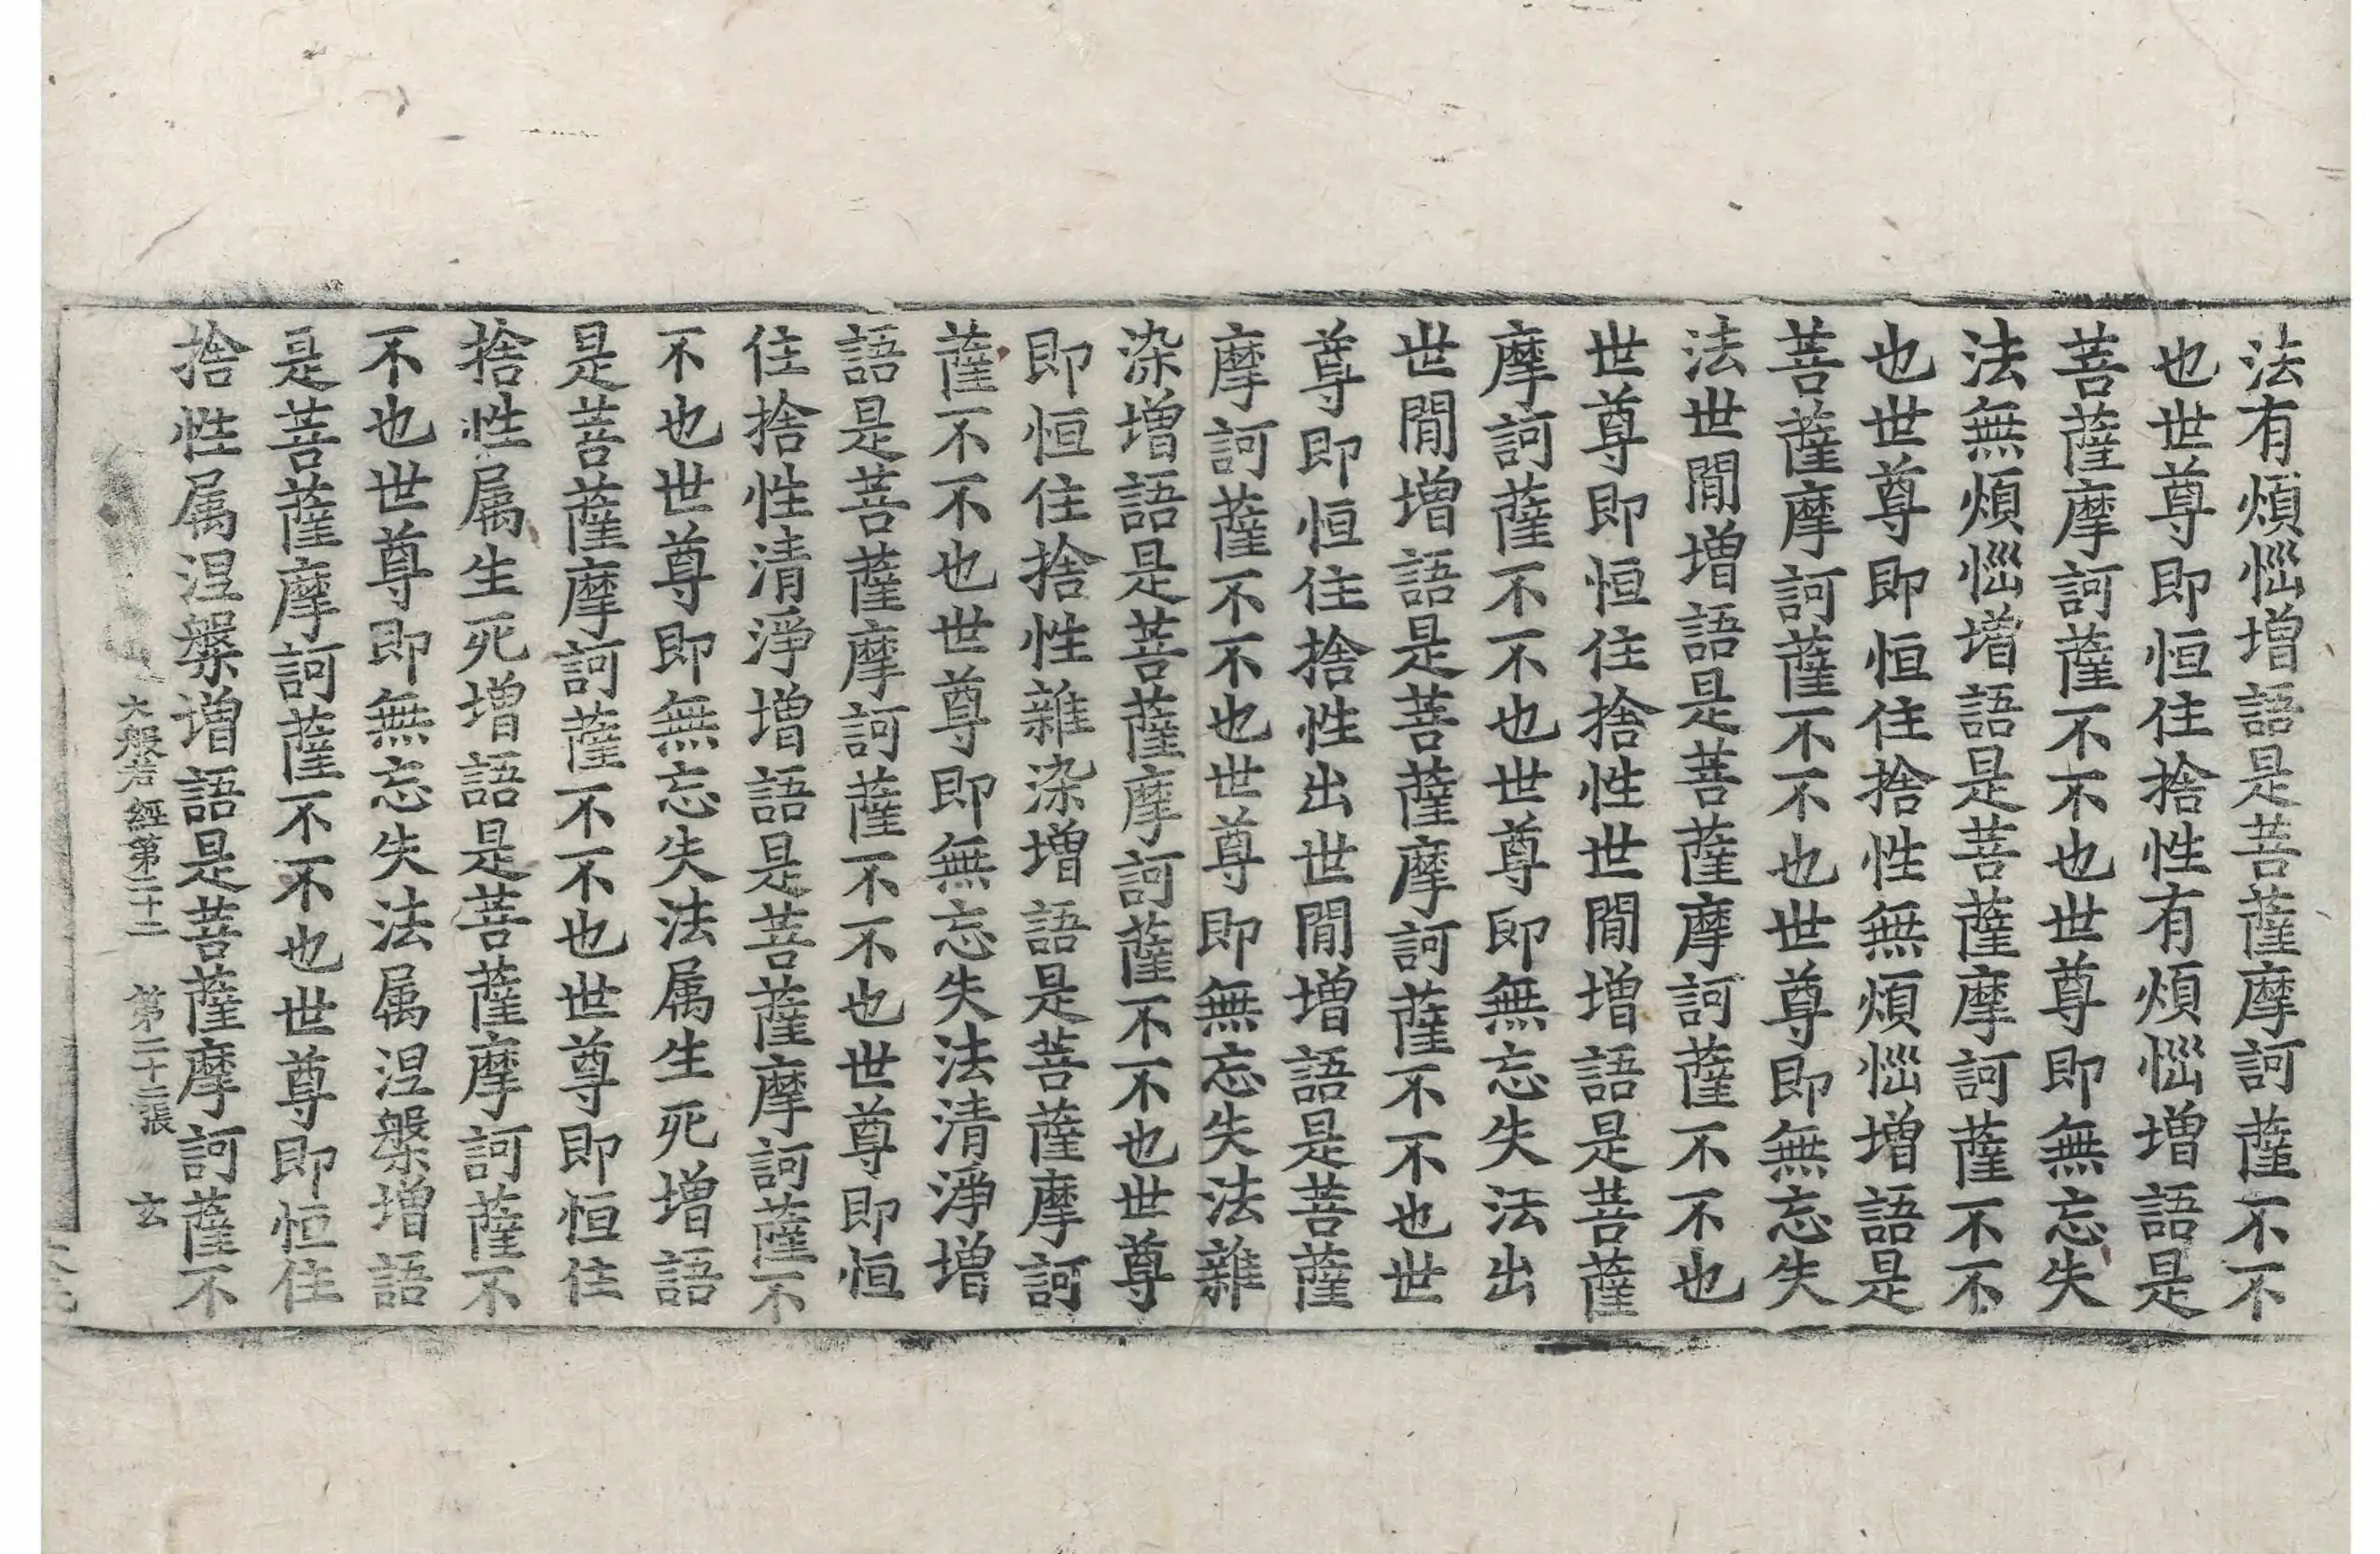 法有煩惱增語是菩薩摩訶薩不不
也世尊即恒住捨性有煩惱增語是
菩薩摩訶薩不不也世尊即無忘失
法無煩惱增語是菩薩摩訶薩不不
也世尊即恒住捨性無煩惱增語是
菩薩摩訶薩不不也世尊即無忘失
法世閒增語是菩薩摩訶薩不不也
世尊即恒住捨性世閒增語是菩薩
摩訶薩不不也世尊即無忘失法出
世閒增語是菩薩摩訶薩不不也世
尊即恒住捨性出世閒增語是菩薩
摩訶薩不不也世尊即無忘失法雜
染增語是菩薩摩訶薩不不也世尊
即恒住捨性雜染增語是菩薩摩訶
薩不不也世尊即無忘失法清淨增
語是菩薩摩訶薩不不也世尊即恒
住捨性清淨增語是菩薩摩訶薩不
不也世尊即無忘失法属生死增語
是菩薩摩訶薩不不也世尊即恒住
捨性属生死增語是菩薩摩訶薩不
不也世尊即無忘失法属涅槃增語
是菩薩摩訶薩不不也世尊即恒住
捨性属涅槃增語是菩薩摩訶薩不
大般若經第二十二 第二十二張 玄